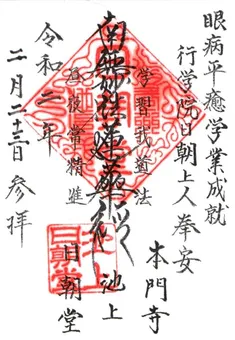 眼病平癒学業成就
行学院日朝上人奉安
本門寺
池上
日朝堂
学習我道法
南無妙法蓮華経
昼夜常精進
令和二年
二月二十三日参拝